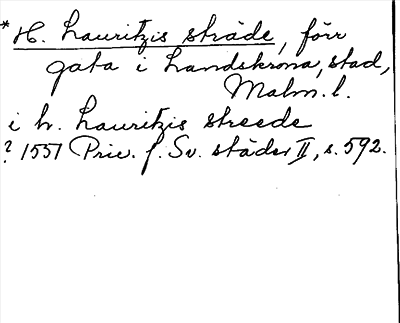 *H. Lauritzis stråde, förr
gata i Landskrona, stad,
Malm. l.
i h. Lauritzis streede
? 1551 Priv. f. Sv. städer II, s. 592.